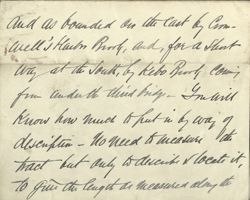 and as bounded on the East by Crom-
well's Harbor Brook, and, for a short
way at the South, by Kebo Brook, coming
from under the third bridge - You will
know how much to put in by way of
description - No need to measure the
tract but only to describe & locate it,
to give the length as measured along the